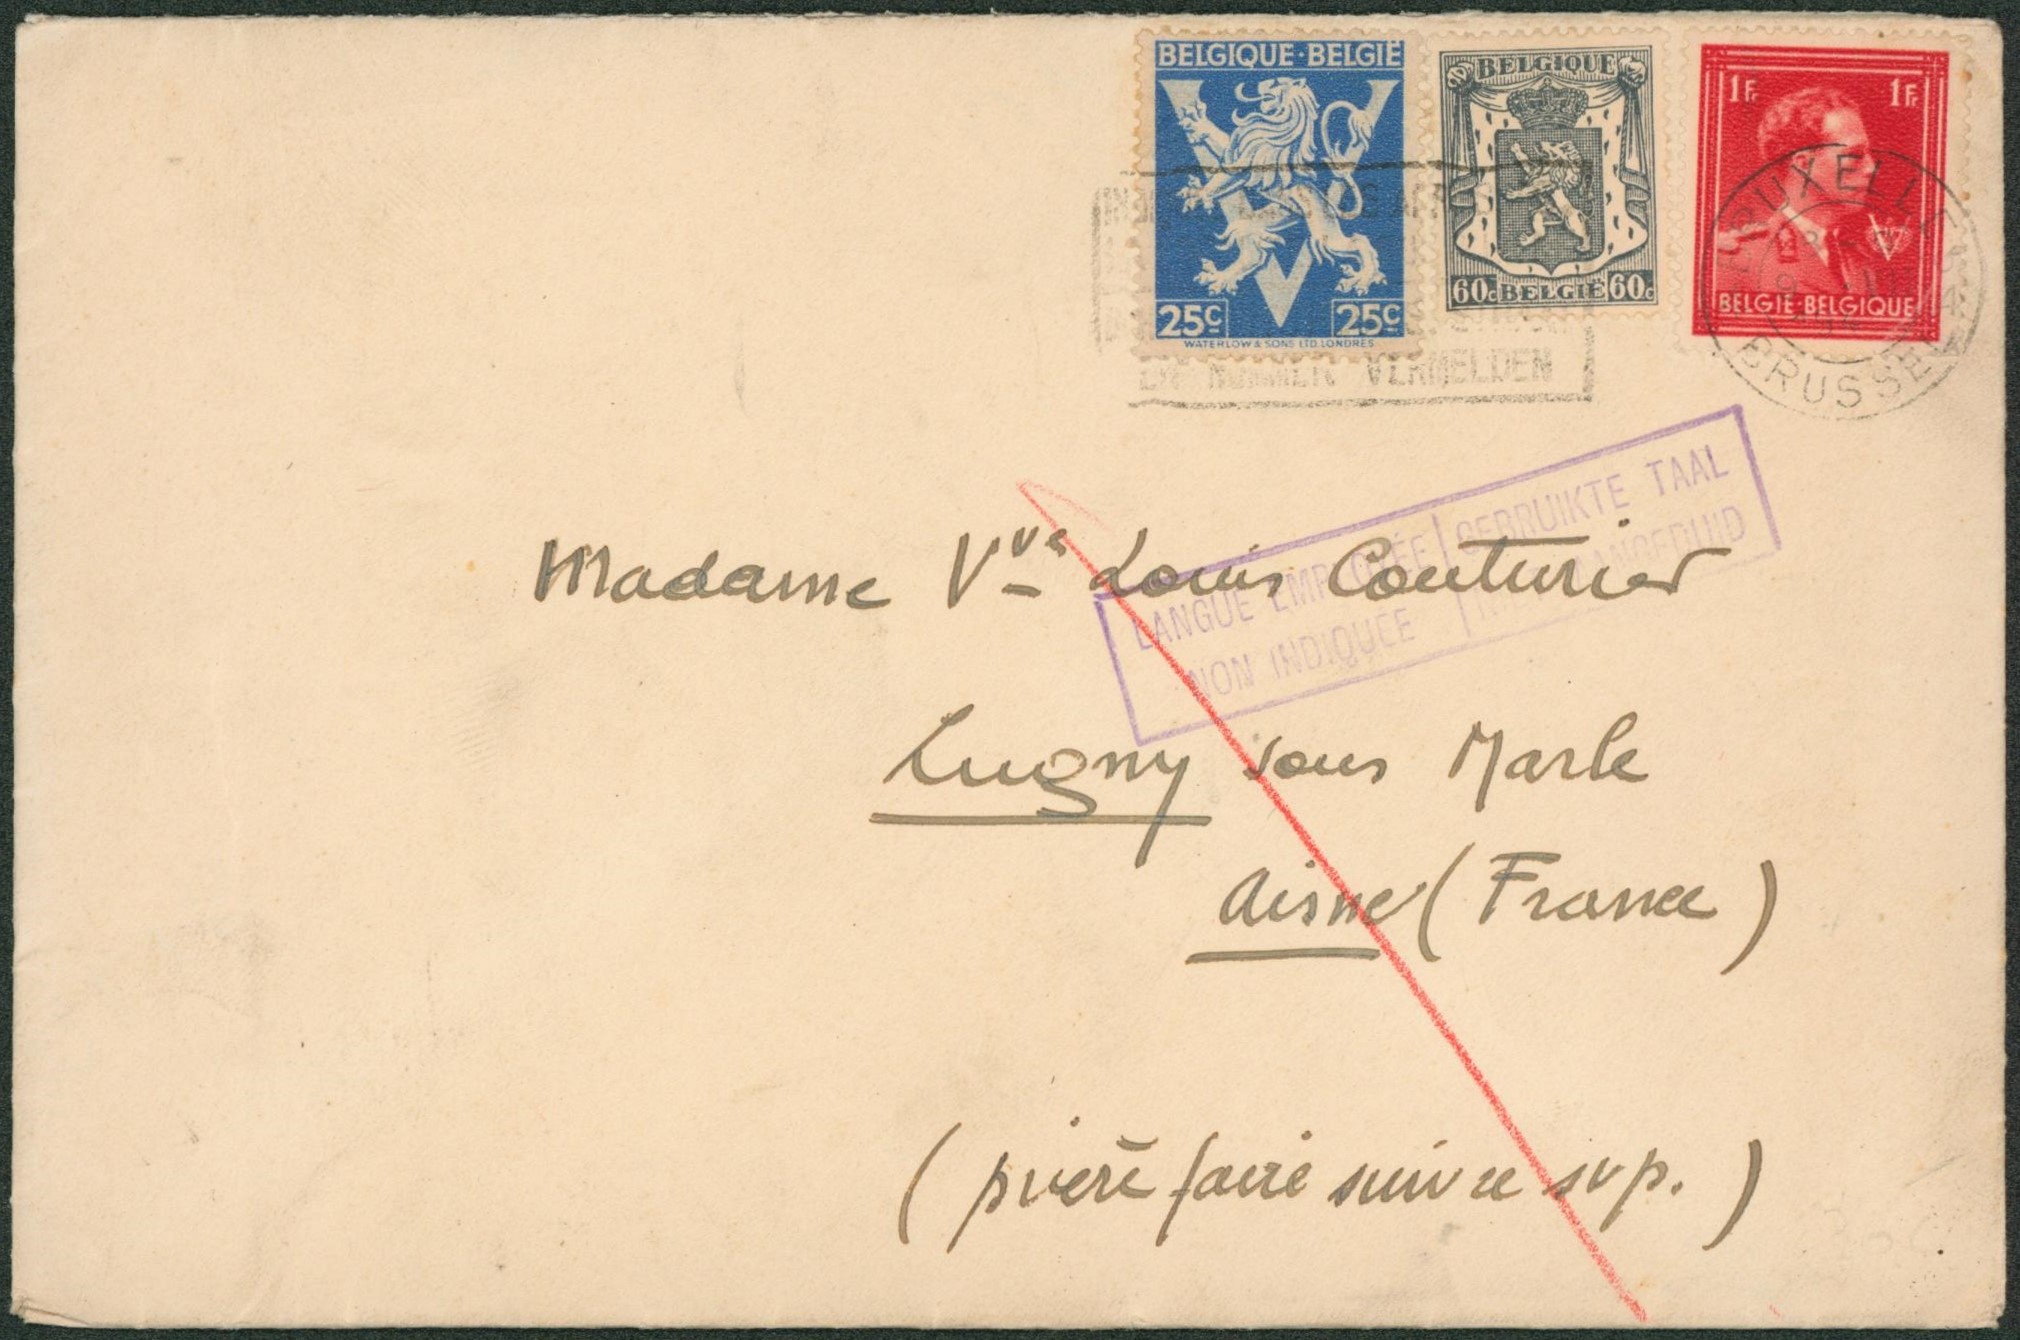 BELGIQUE·BELGIË
25C 25C
WATERLOW & SONS LTD. LONDRES
BELGIQUE
60c BELGIË 60c
1Fr 1Fr
BELGIË·BELGIQUE
BRUXELLES
BRUSSEL
NUMMER VERMELDEN
LANGUE EMPLOYÉE GEBRUIKTE TAAL
NON INDIQUÉE NIET AANGEDUID
Madame Vve Louis Couturier
Lugny sous Marle
Aisne (France)
(prière faire suivre svp.)